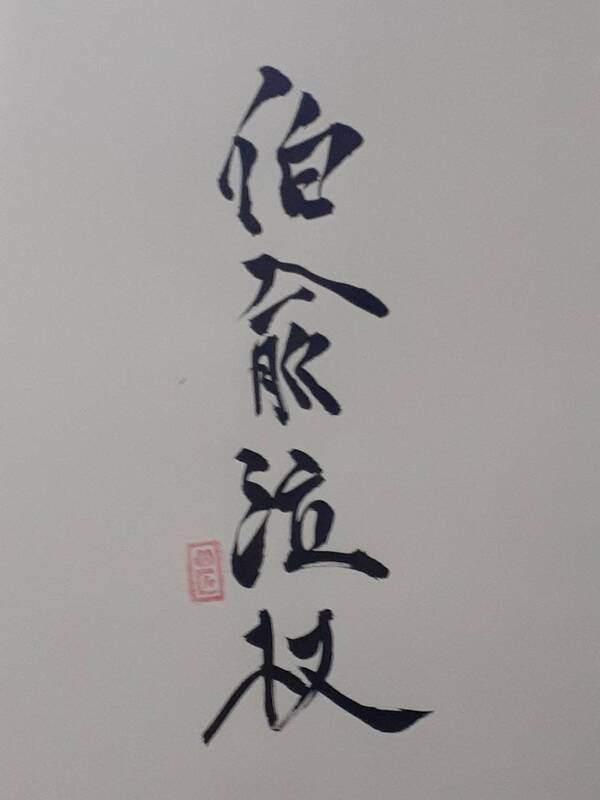 伯兪泣杖